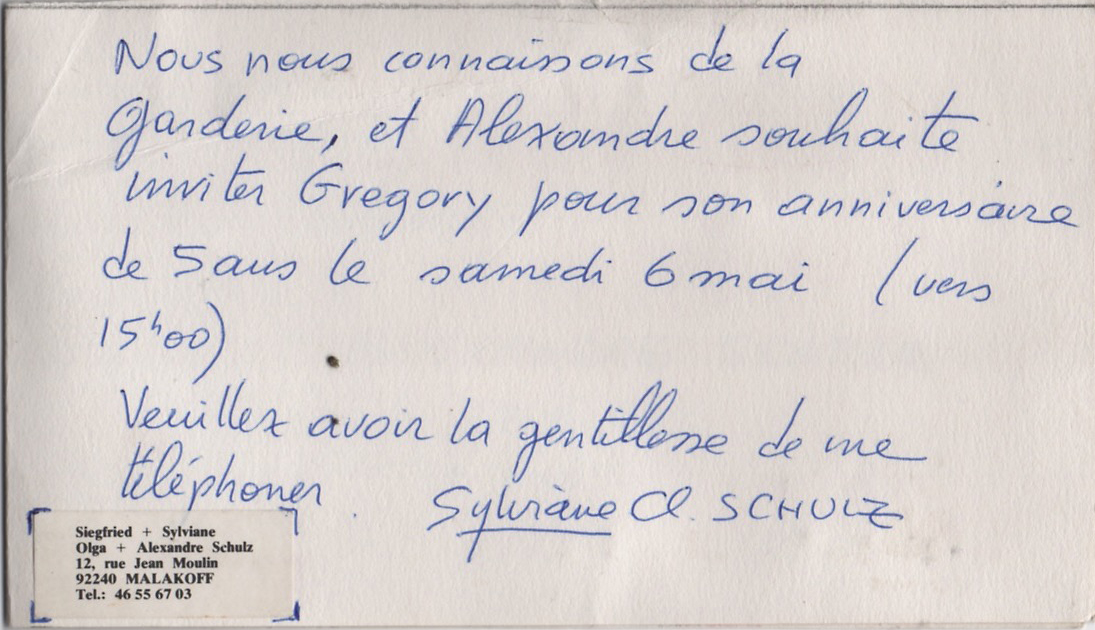 Nous nous connaissons de la
Garderie, et Alexandre souhaite
inviter Gregory pour son anniversaire
de 5 ans le samedi 6 mai (vers
15h00)
Veuillez avoir la gentillesse de me
téléphoner.
Sylviane Cl. SCHULZ
Siegfried + Sylviane
Olga + Alexandre Schulz
12, rue Jean Moulin
92240 MALAKOFF
Tel.: 46 55 67 03